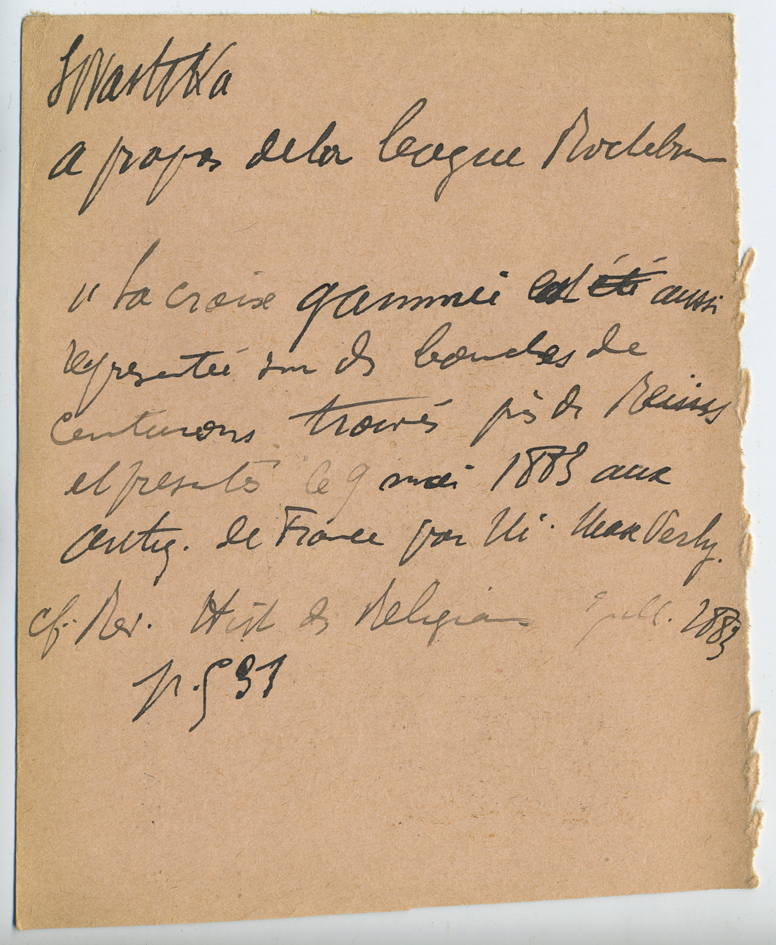 Swastika
a propos de la bague Rochebrun
"La croix gammée est été aussi
representée sur des boucles de
ceinturons trouvés près de Reims
et presentés le 9 mai 1883 aux
antiq. de France par M. Max Verly.
cf. Rev. Hist des Religions juill. 1883
p. 531